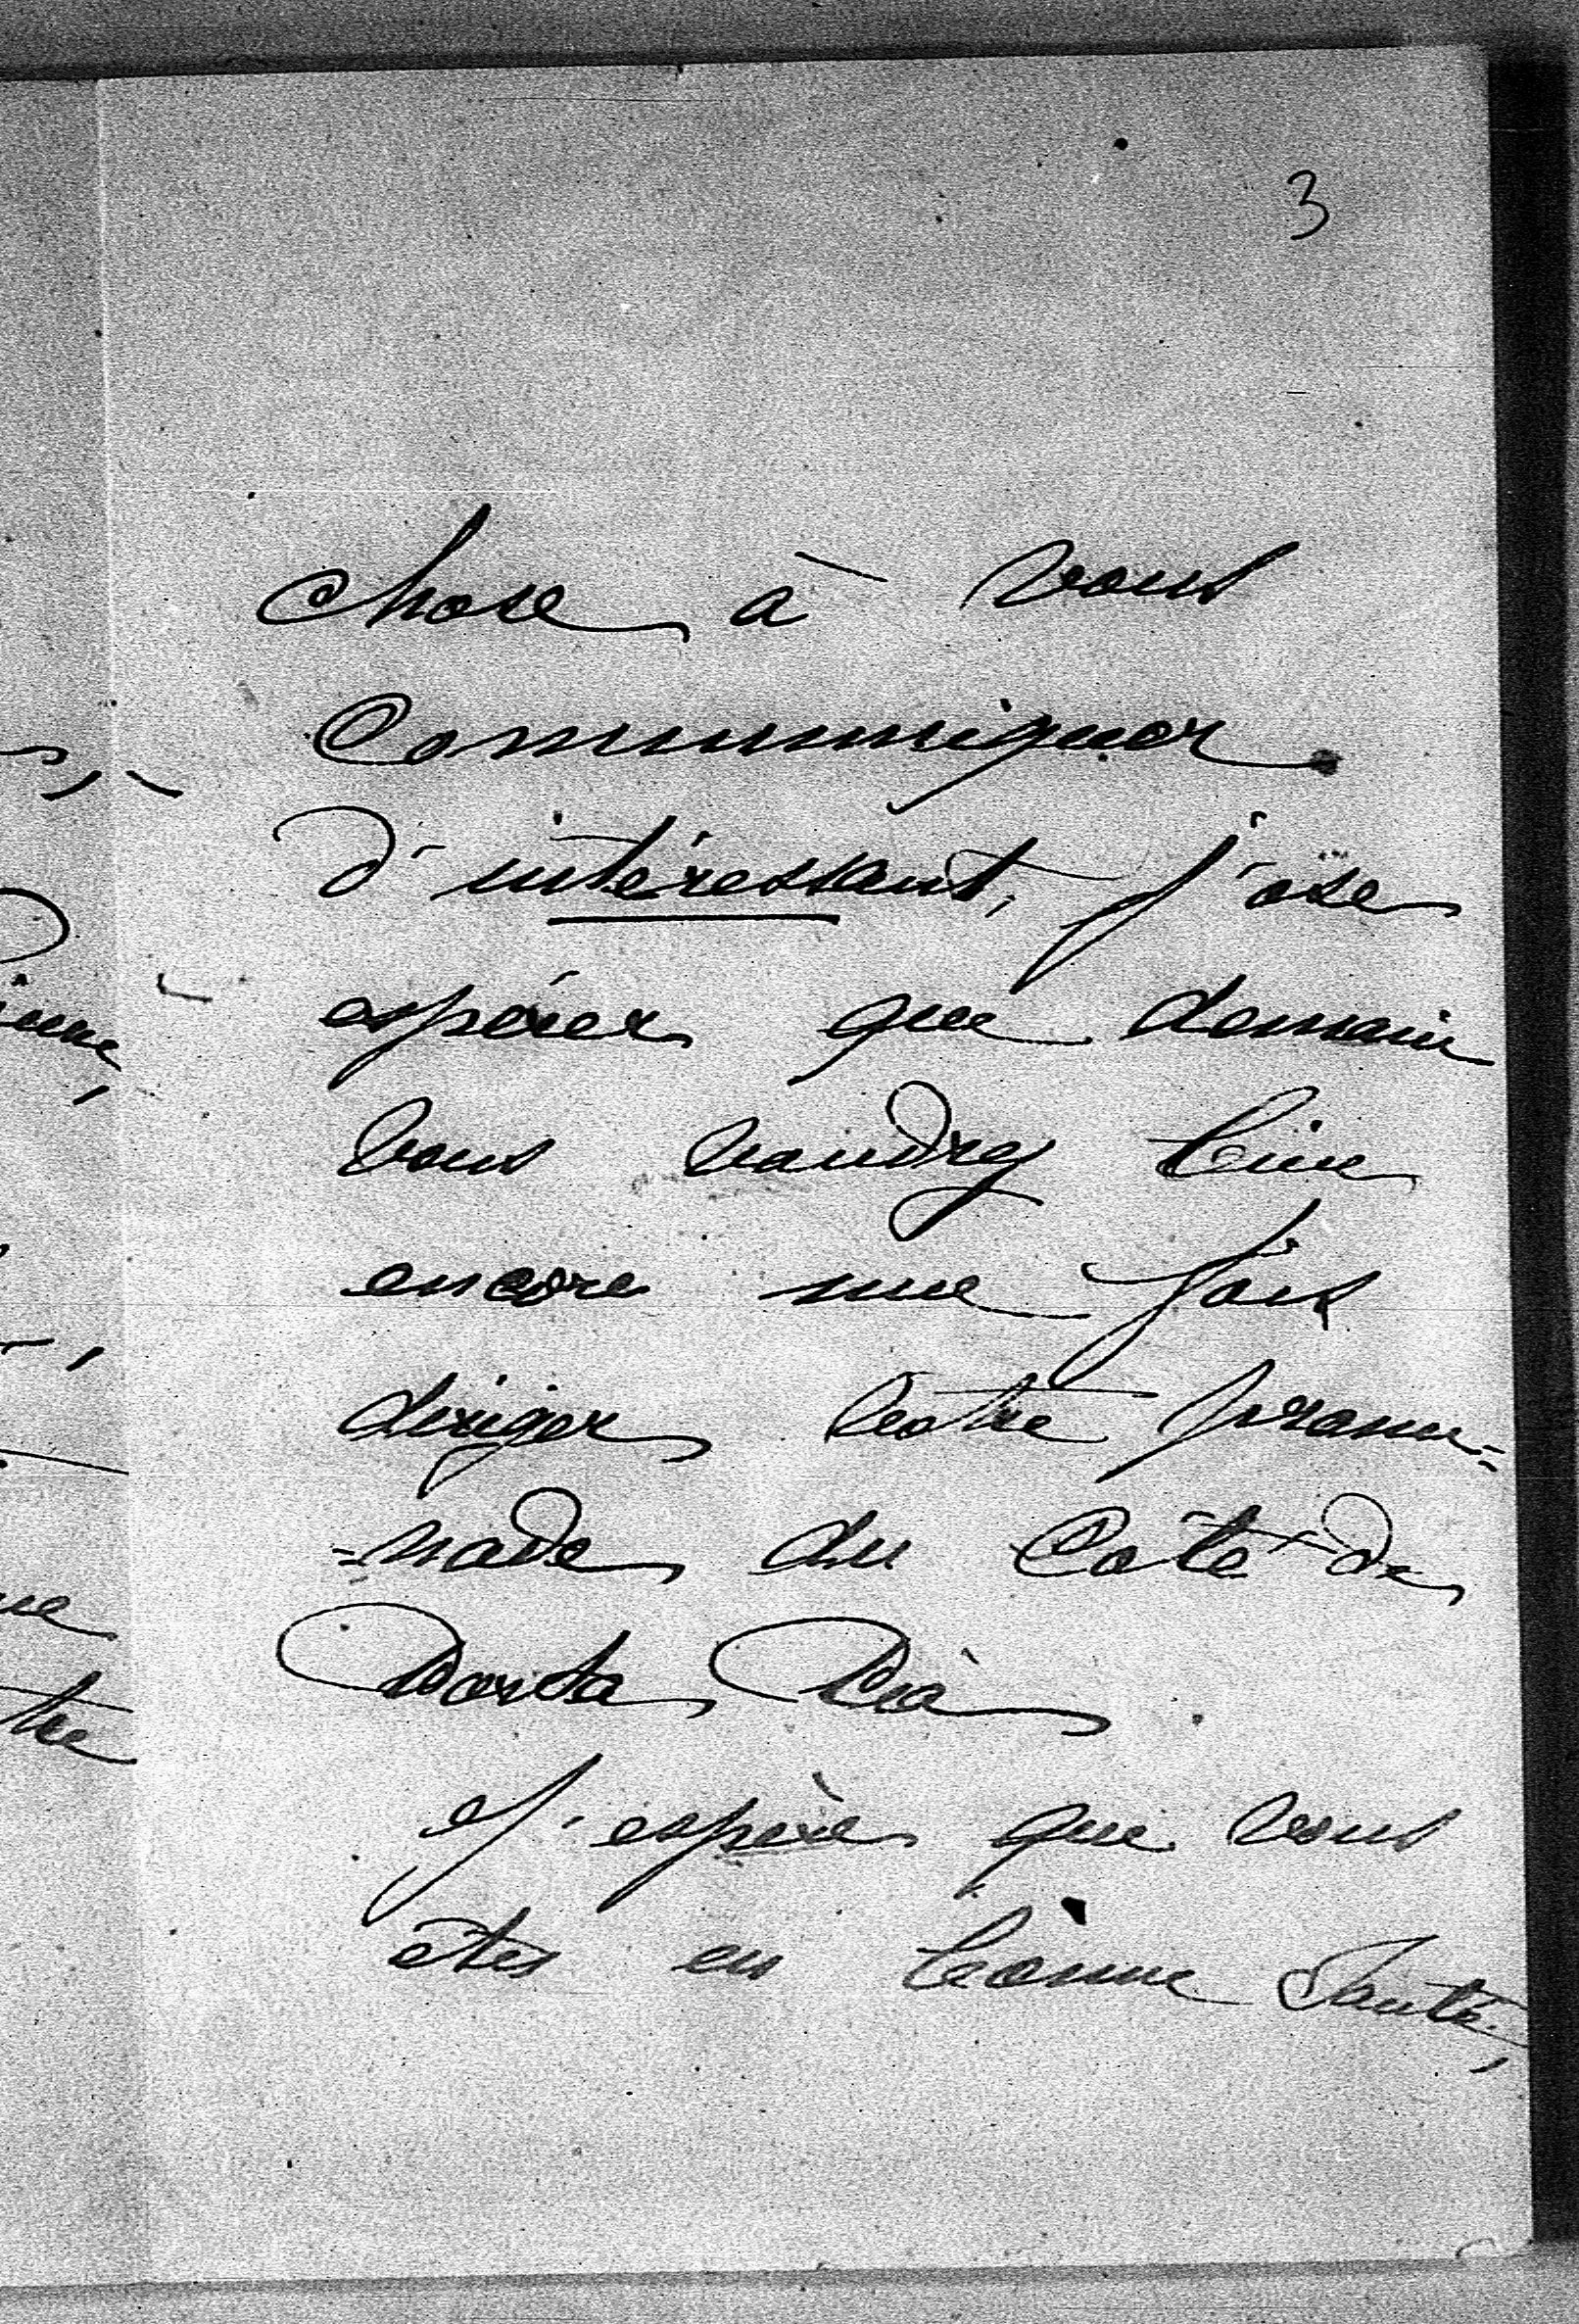 3
chose à vous
Communiquer
d'intéressant, j'ose
espérer que demain
vous voudrez bien
encore une fois
diriger votre prome=
=nade du Côté de
Porta Pia.
J'espère que vous
êtes en bonne Santé,